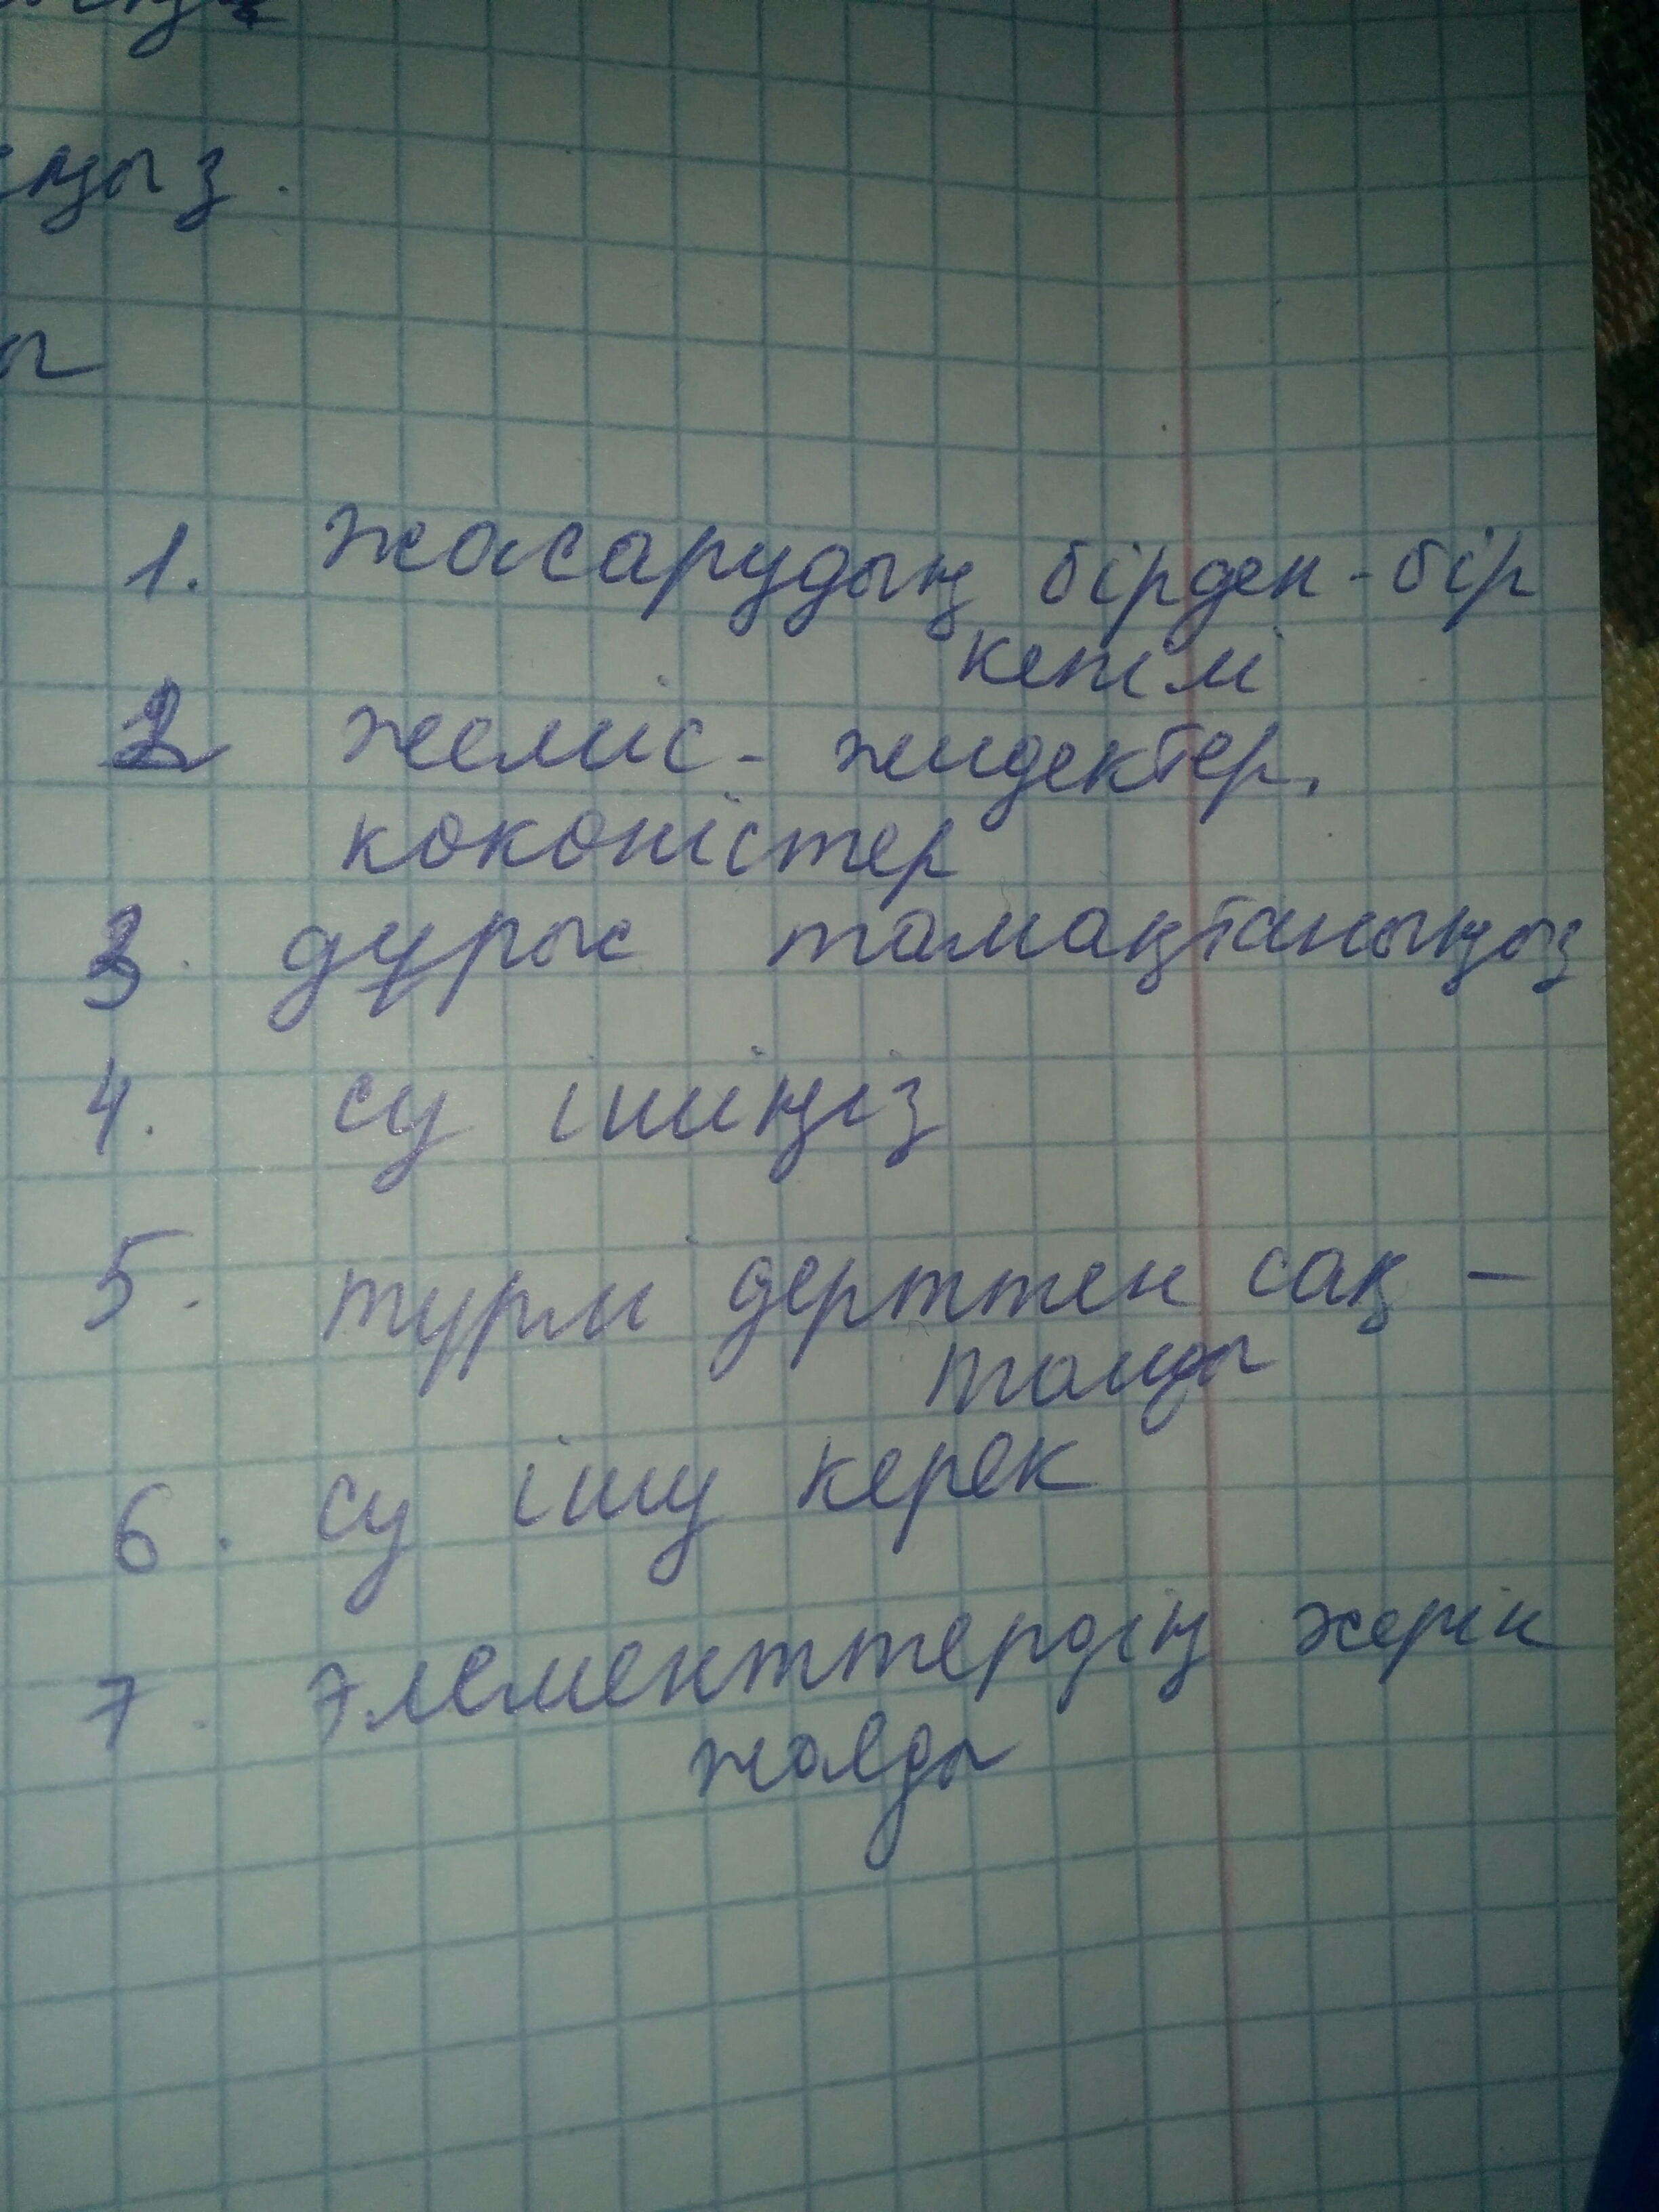 ңыз.
ы
1. жасарудың бірден-бір
кепілі
2 жеміс- жидектер,
коконістер
3. дұрыс тамақтаныңыз
4. су ішіңіз
5. түрлі дерттен сақ-
тайды
6. су ішу керек
7. элементтердің жерін
жояды